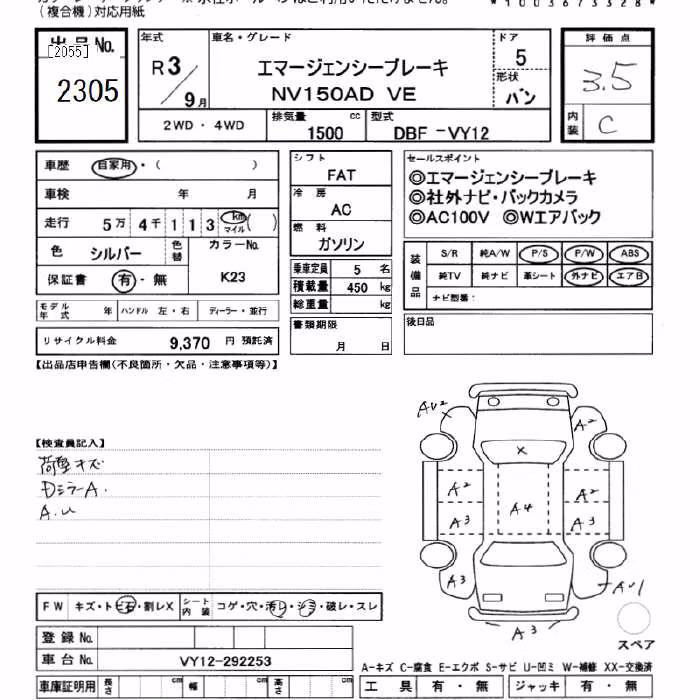 (複合機)対応用紙
*1003673328*
出品No. [2055]
2305
年式 R3/9月
車名・グレード エマージェンシーブレーキ
NV150AD VE
ドア 5
形状 バン
評価点 3.5
内装 C
2WD・4WD
排気量 1500 cc
型式 DBF-VY12
車歴 自家用・( )
車検 年 月
走行 5万4千113 km マイル ( )
色 シルバー 色替
カラーNo. K23
保証書 有・無
モデル年式 年 ハンドル 左・右 ディーラー・並行
リサイクル料金 9,370 円 預託済
シフト FAT
冷房 AC
燃料 ガソリン
乗車定員 5 名
積載量 450 kg
総重量 kg
書類期限 月 日
セールスポイント
◎エマージェンシーブレーキ
◎社外ナビ・バックカメラ
◎AC100V ◎Wエアバック
装備品 S/R 純A/W P/S P/W ABS
純TV 純ナビ 革シート 外ナビ エアB
ナビ型番:
後日品
【出品店申告欄(不良箇所・欠品・注意事項等)】
【検査員記入】
荷室キズ
DミラーA.
A.U
AU2
A2
X
A2
A2
A4
A3
A3
A3
AU1
A3
スペア
FW キズ・トビ石・割レX シート内装 コゲ・穴・汚レ・シミ・破レ・スレ
登録No.
車台No. VY12-292253
車庫証明用 長さ cm 幅 cm 高さ cm
A-キズ C-腐食 E-エクボ S-サビ U-凹ミ W-補修 XX-交換済
工具 有・無 ジャッキ 有・無